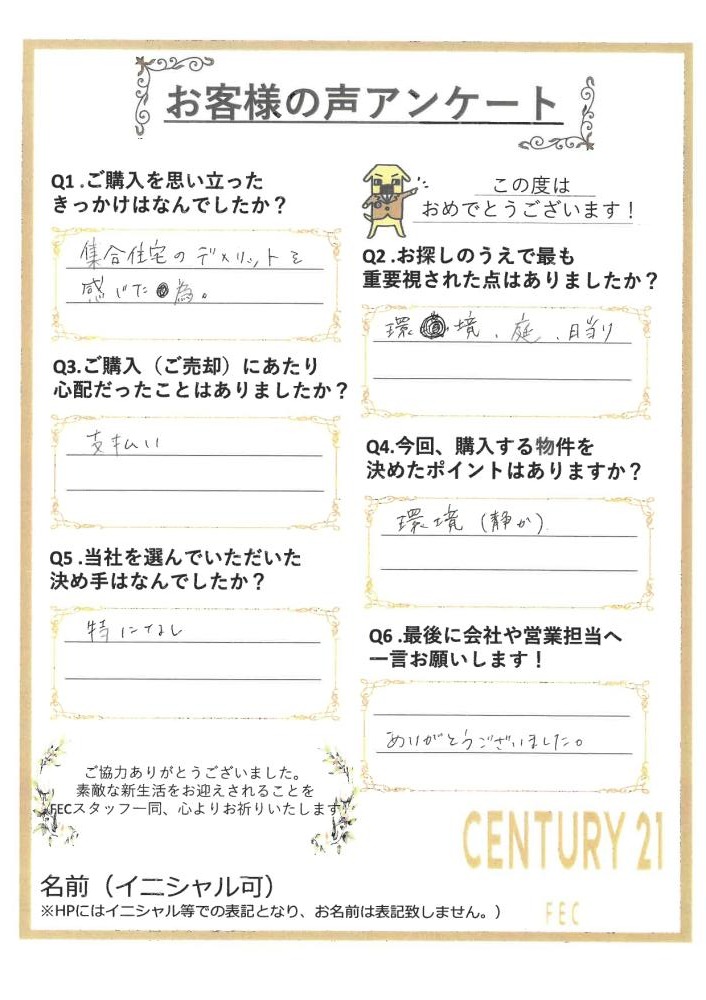 お客様の声アンケート
Q1.ご購入を思い立った
きっかけはなんでしたか？
集合住宅のデメリットを
感じた為。
この度は
おめでとうございます！
Q2.お探しのうえで最も
重要視された点はありましたか？
環境、庭、日当り
Q3.ご購入（ご売却）にあたり
心配だったことはありましたか？
支払い
Q4.今回、購入する物件を
決めたポイントはありますか？
環境（静か）
Q5.当社を選んでいただいた
決め手はなんでしたか？
特になし
Q6.最後に会社や営業担当へ
一言お願いします！
ありがとうございました。
ご協力ありがとうございました。
素敵な新生活をお迎えされることを
FECスタッフ一同、心よりお祈りいたします
CENTURY 21
FEC
名前（イニシャル可）
※HPにはイニシャル等での表記となり、お名前は表記致しません。）